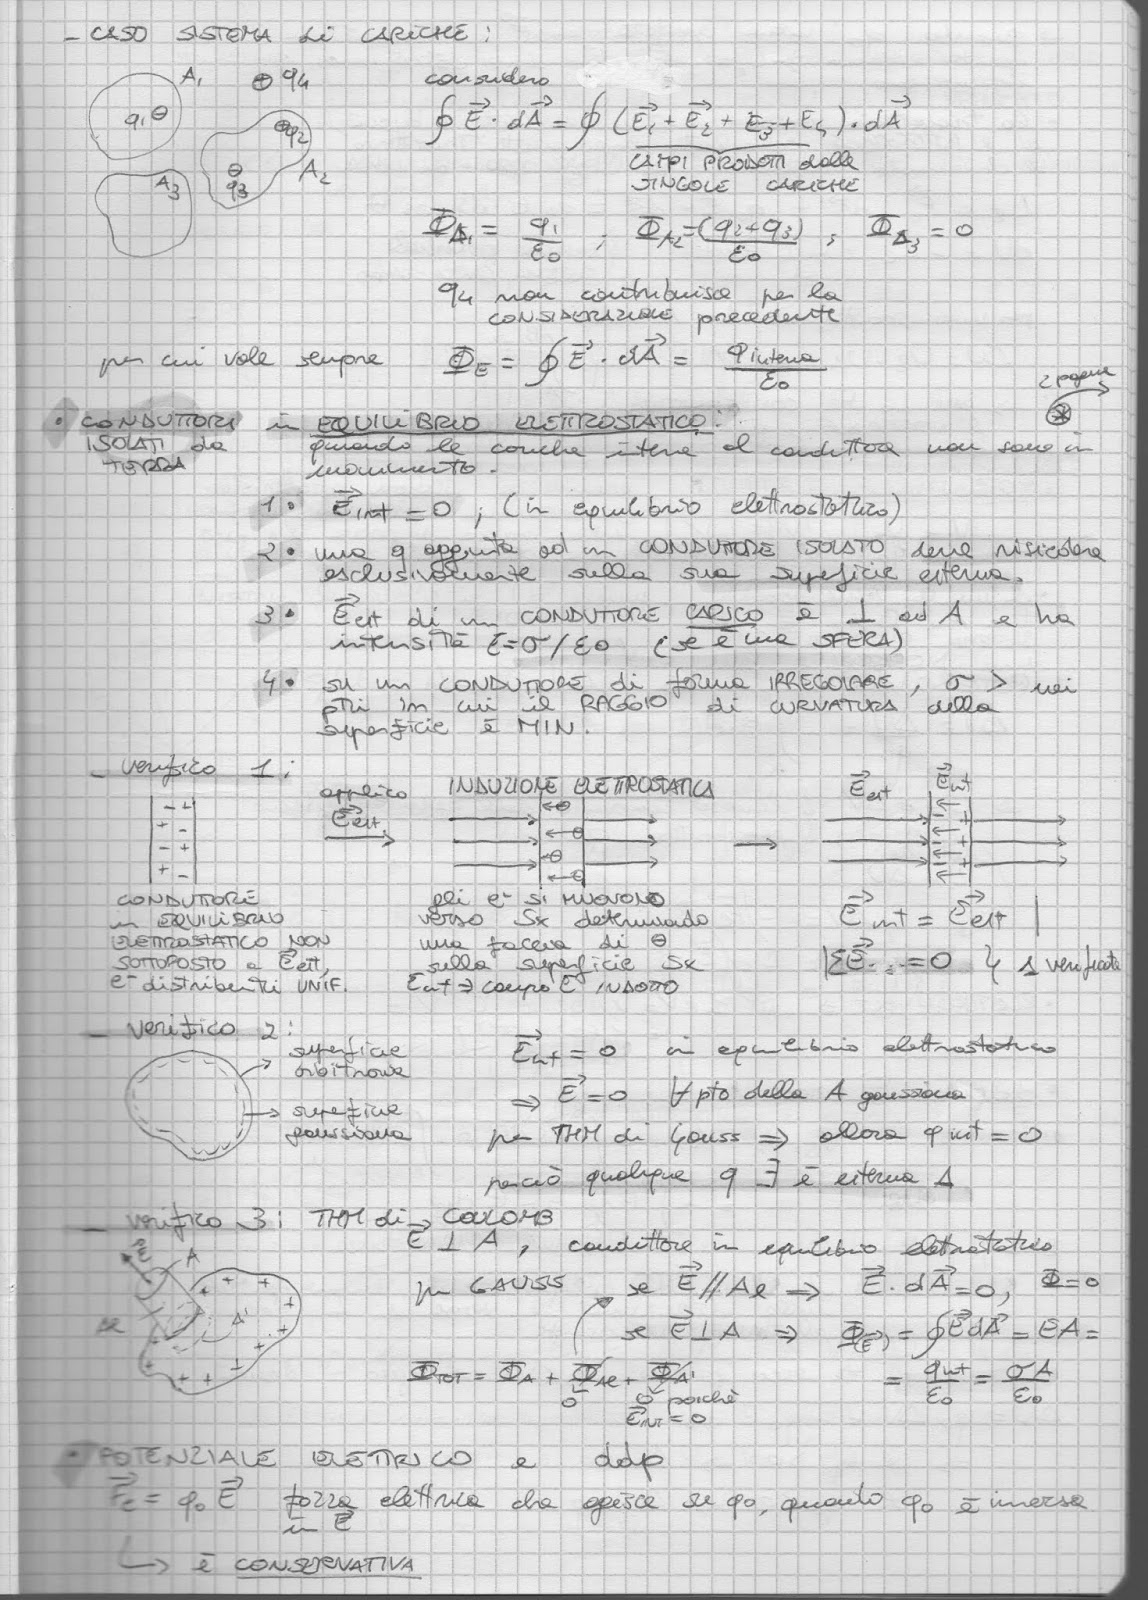 - CASO SISTEMA di CARICHE:
A₁
⊕ q₄
q₁ ⊖
⊕q₂
⊖
q₃
A₂
A₃
considero
∮ E⃗ · dA⃗ = ∮ (E⃗₁ + E⃗₂ + E₃ + E₄) · dA⃗
CAMPI PRODOTTI dalle
SINGOLE CARICHE
Φ_A₁ = q₁/ε₀ ; Φ_A₂ = (q₂+q₃)/ε₀ ; Φ_A₃ = 0
q₄ non contribuisce per la
CONSIDERAZIONE precedente
per cui vale sempre Φ_E = ∮ E⃗ · dA⃗ = q interna/ε₀
2 pagine
⊛
• CONDUTTORI in EQUILIBRIO ELETTROSTATICO:
ISOLATI da
TERRA
quando le cariche interne al conduttore non sono in
movimento.
1• E⃗int = 0 ; (in equilibrio elettrostatico)
2• una q aggiunta ad un CONDUTTORE ISOLATO deve risiedere
esclusivamente sulla sua superficie esterna.
3• E⃗est di un CONDUTTORE CARICO è ⊥ ad A e ha
intensità E=σ/ε₀ (se è una SFERA)
4• su un CONDUTTORE di forma IRREGOLARE, σ > nei
pti in cui il RAGGIO di CURVATURA della
superficie è MIN.
- verifico 1:
applico
E⃗est
INDUZIONE ELETTROSTATICA
E⃗est
E⃗int
CONDUTTORE
in EQUILIBRIO
ELETTROSTATICO NON
SOTTOPOSTO a E⃗est,
e⁻ distribuiti UNIF.
gli e⁻ si MUOVONO
verso Sx determinando
una faccia di ⊖
sulla superficie Sx
Eint → campo E⃗ INDOTTO
E⃗int = E⃗est |
= 0 } 1 verificata
- verifico 2:
superficie
arbitraria
superficie
gaussiana
E⃗int = 0 in equilibrio elettrostatico
⇒ E⃗ = 0 ∀ pto della A gaussiana
per THM di Gauss ⇒ allora q int = 0
perciò qualunque q ∃ è esterna
- verifico 3: THM di COULOMB
E⃗ ⊥ A, conduttore in equilibrio elettrostatico
E⃗
A
Aℓ
A'
per GAUSS se E⃗ // Aℓ ⇒ E⃗ · dA⃗ = 0, Φ = 0
se E⃗ ⊥ A ⇒ Φ(E⃗) = ∮ E⃗ dA⃗ = EA =
Φ_TOT = Φ_A + Φ_Aℓ + Φ_A'
= qint/ε₀ = σA/ε₀
0
0 poiché
E⃗int = 0
• POTENZIALE ELETTRICO e ddp
F⃗e = q₀ E⃗ forza elettrica che agisce su q₀, quando q₀ è immersa
in E⃗
↳ è CONSERVATIVA